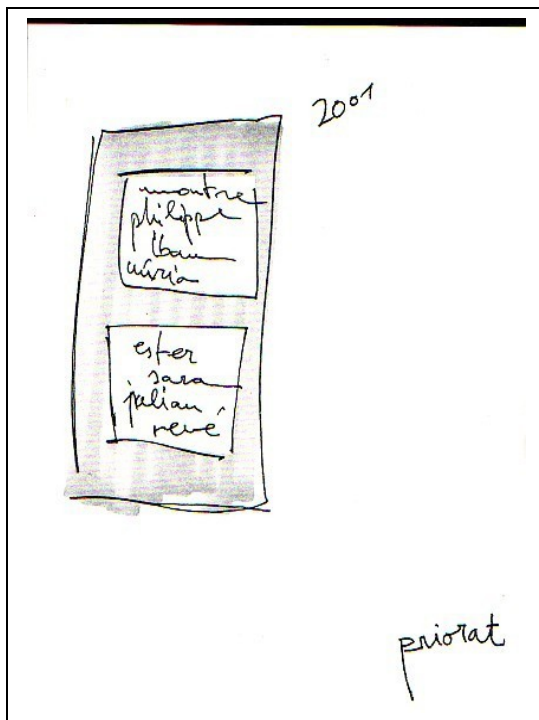 2001
montse
philippe
iban
núria
ester
sara
julian
rené
priorat